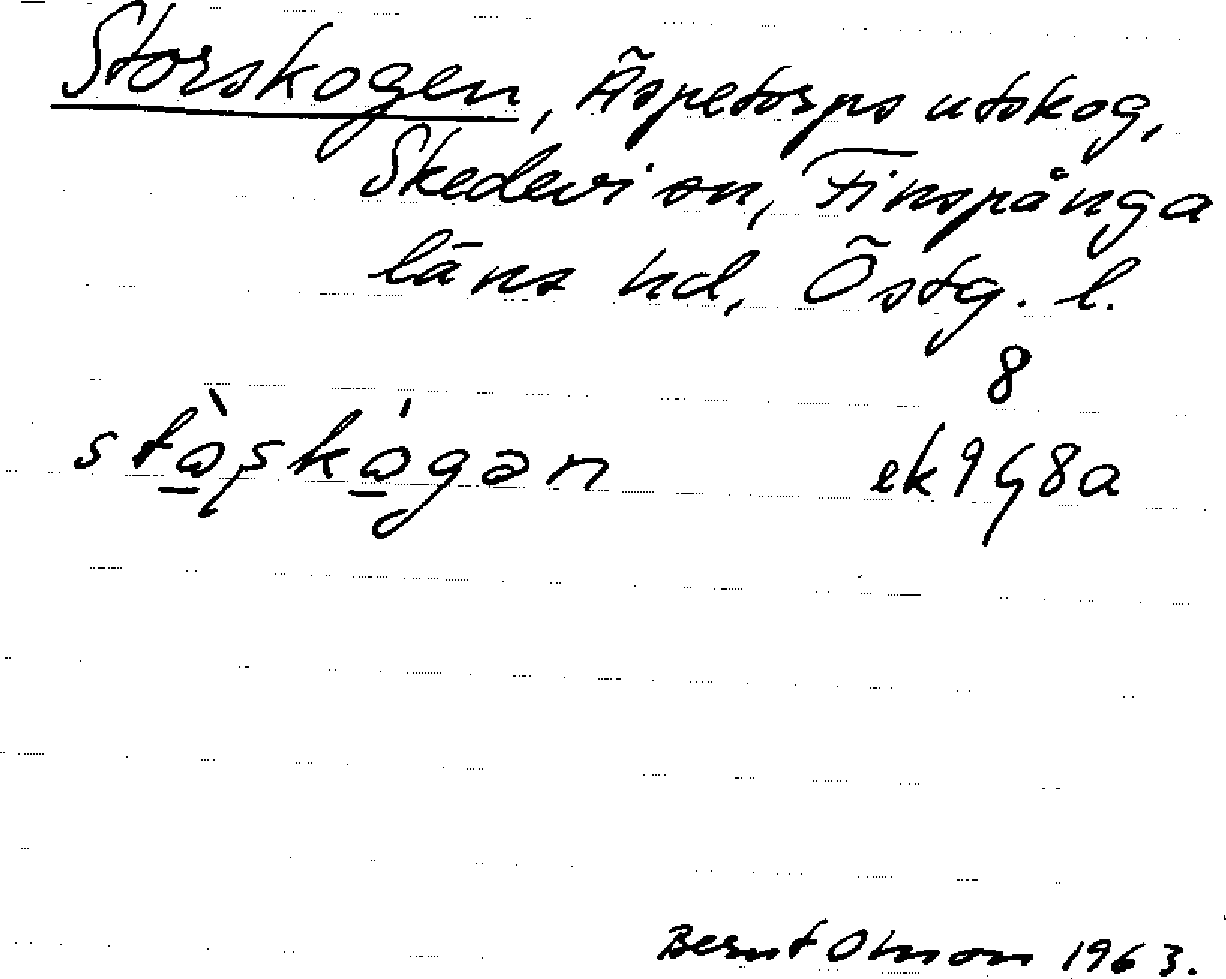 Storskogen, Äspetorps utskog,
Skedevi sn, Finspånga
läns hd, Östg. l.
8
stɷ̀ʂkɷ́gən ek 9G8a
Bernt Olsson 1963.